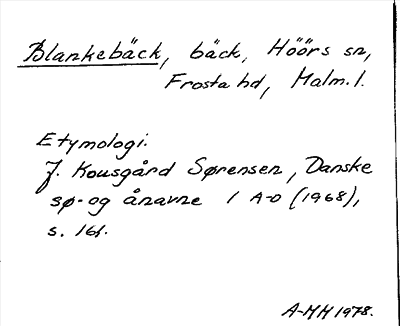 Blankebäck, bäck, Höörs sn,
Frosta hd, Malm. l.
Etymologi.
J. Kousgård Sørensen, Danske
sø- og ånavne 1 A-D (1968),
s. 161.
A-MH 1978.